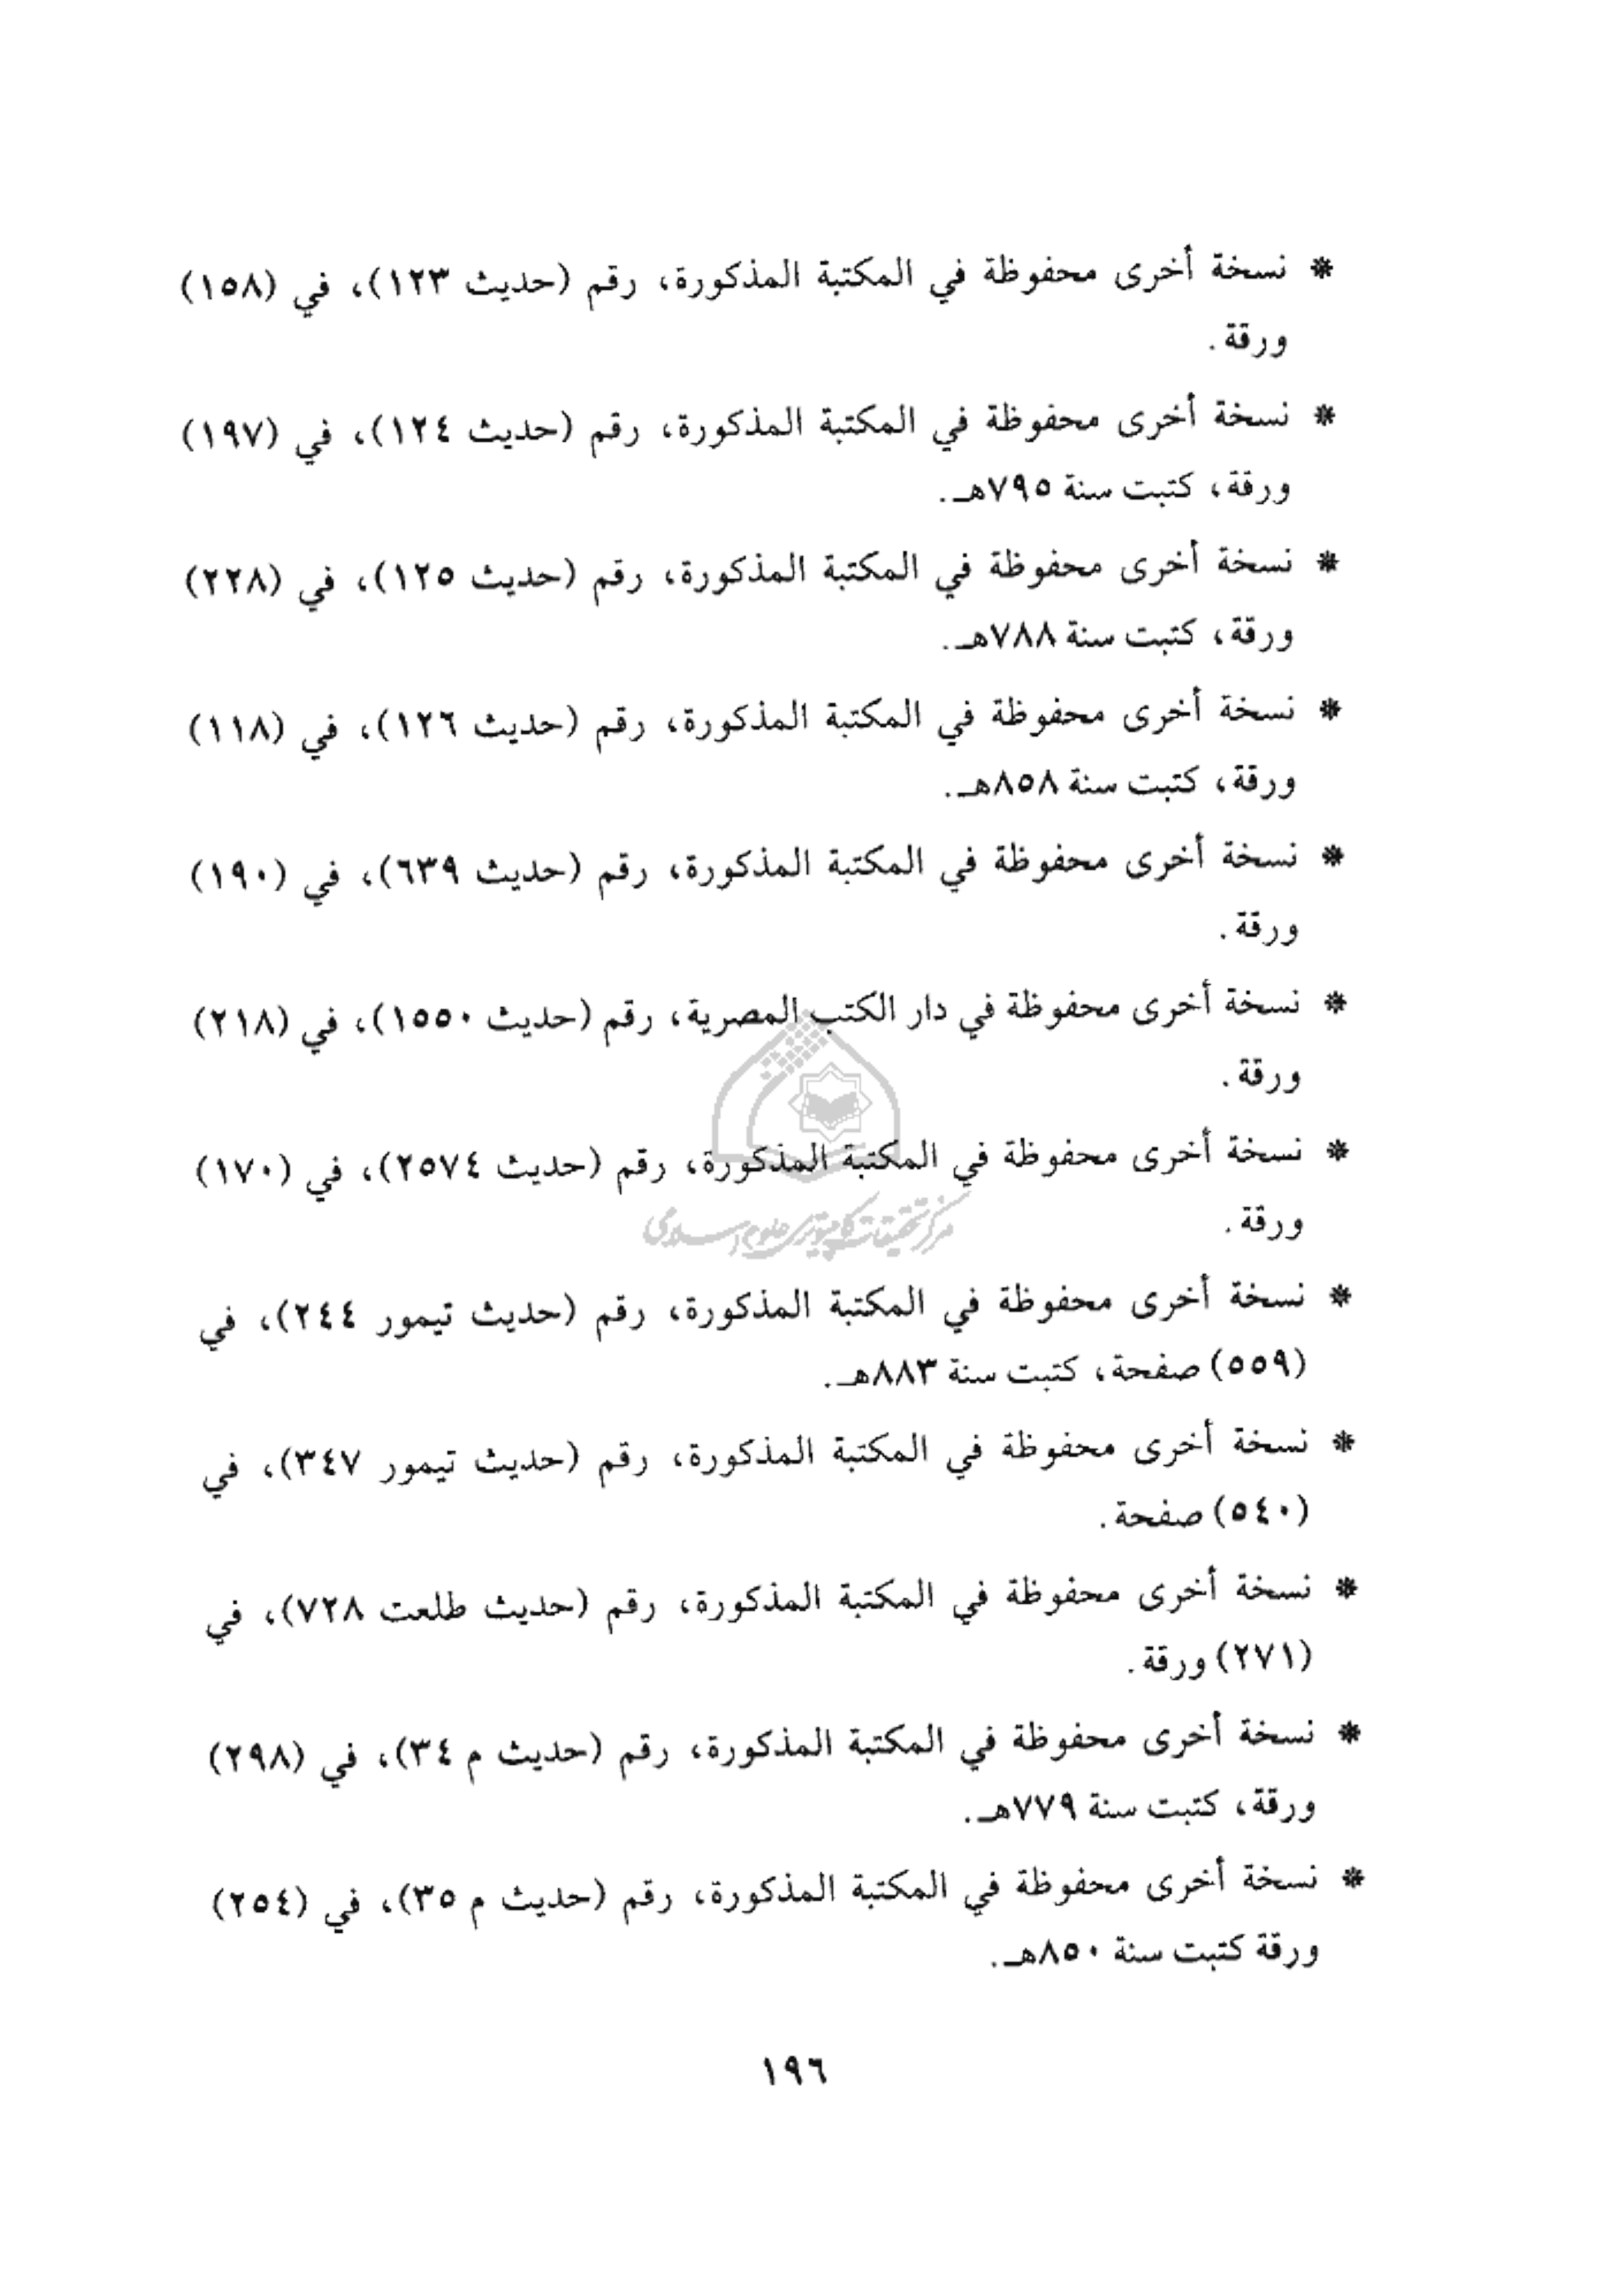 * نسخة أخرى محفوظة في المكتبة المذكورة، رقم (حديث ١٢٣)، في (١٥٨)
ورقة.
* نسخة أخرى محفوظة في المكتبة المذكورة، رقم (حديث ١٢٤)، في (١٩٧)
ورقة، كتبت سنة ٧٩٥هـ.
* نسخة أخرى محفوظة في المكتبة المذكورة، رقم (حديث ١٢٥)، في (٢٢٨)
ورقة، كتبت سنة ٧٨٨هـ.
* نسخة أخرى محفوظة في المكتبة المذكورة، رقم (حديث ١٢٦)، في (١١٨)
ورقة، كتبت سنة ٨٥٨هـ.
* نسخة أخرى محفوظة في المكتبة المذكورة، رقم (حديث ٦٣٩)، في (١٩٠)
ورقة.
* نسخة أخرى محفوظة في دار الكتب المصرية، رقم (حديث ١٥٥٠)، في (٢١٨)
ورقة.
* نسخة أخرى محفوظة في المكتبة المذكورة، رقم (حديث ٢٥٧٤)، في (١٧٠)
مرکز تحقیقات کامپیوتری علوم اسلامی
ورقة.
* نسخة أخرى محفوظة في المكتبة المذكورة، رقم (حديث تيمور ٢٤٤)، في
(٥٥٩) صفحة، كتبت سنة ٨٨٣هـ.
* نسخة أخرى محفوظة في المكتبة المذكورة، رقم (حديث تيمور ٣٤٧)، في
(٥٤٠) صفحة.
* نسخة أخرى محفوظة في المكتبة المذكورة، رقم (حديث طلعت ٧٢٨)، في
(٢٧١) ورقة.
* نسخة أخرى محفوظة في المكتبة المذكورة، رقم (حديث م ٣٤)، في (٢٩٨)
ورقة، كتبت سنة ٧٧٩هـ.
* نسخة أخرى محفوظة في المكتبة المذكورة، رقم (حديث م ٣٥)، في (٢٥٤)
ورقة كتبت سنة ٨٥٠هـ.
١٩٦